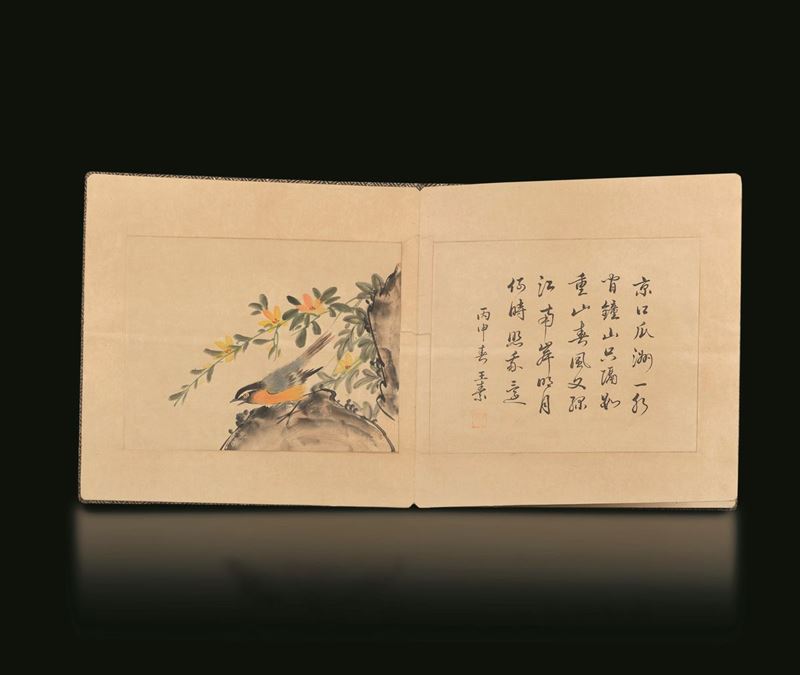 京口瓜洲一水
間鐘山只隔數
重山春風又綠
江南岸明月
何時照我還
丙申春王素